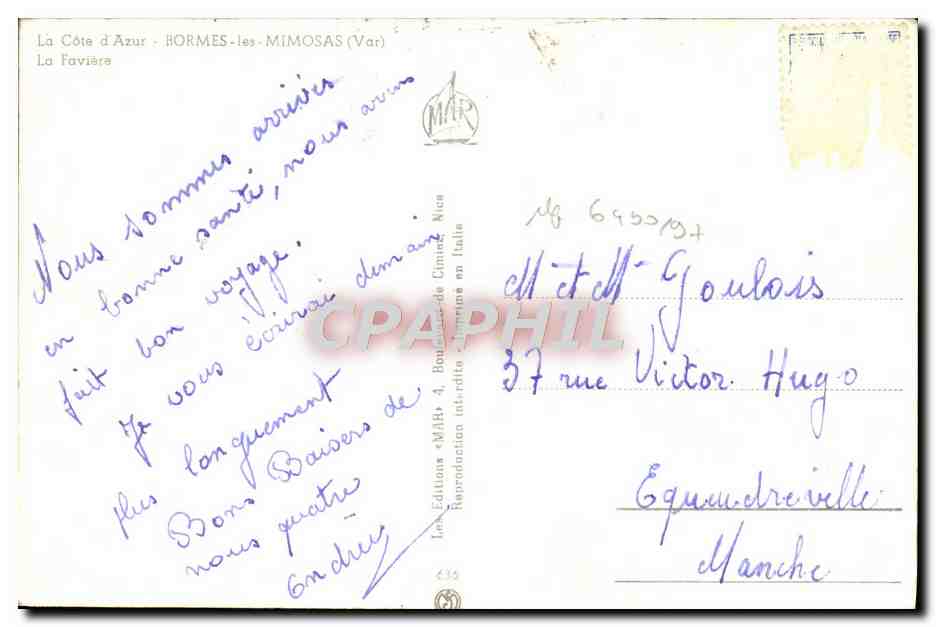 La Côte d'Azur - BORMES-les-MIMOSAS (Var)
La Favière
MAR
Nous sommes arrivés
en bonne santé, nous avons
fait bon voyage.
Je vous écrirai demain
plus longuement
Bons Baisers de
nous quatre
Les Editions «MAR» 4, Boulevard de Cimiez, Nice
Reproduction interdite - Imprimé en Italie
636
M et Me Goulois
37 rue Victor Hugo
Equeurdreville
Manche
CPAPHIL